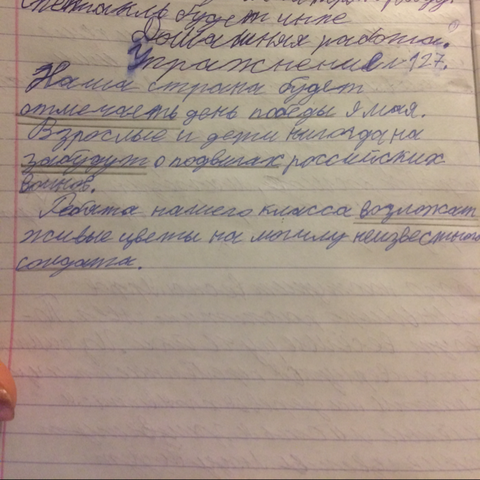 спектакль будет инте
Домашняя работа.
Упражнение 127.
Наша страна будет
отмечать день победы 9 мая.
Взрослые и дети никогда на
забудут о подвигах российских
воинов.
Ребята нашего класса возложат
живые цветы на могилу неизвестного
солдата.